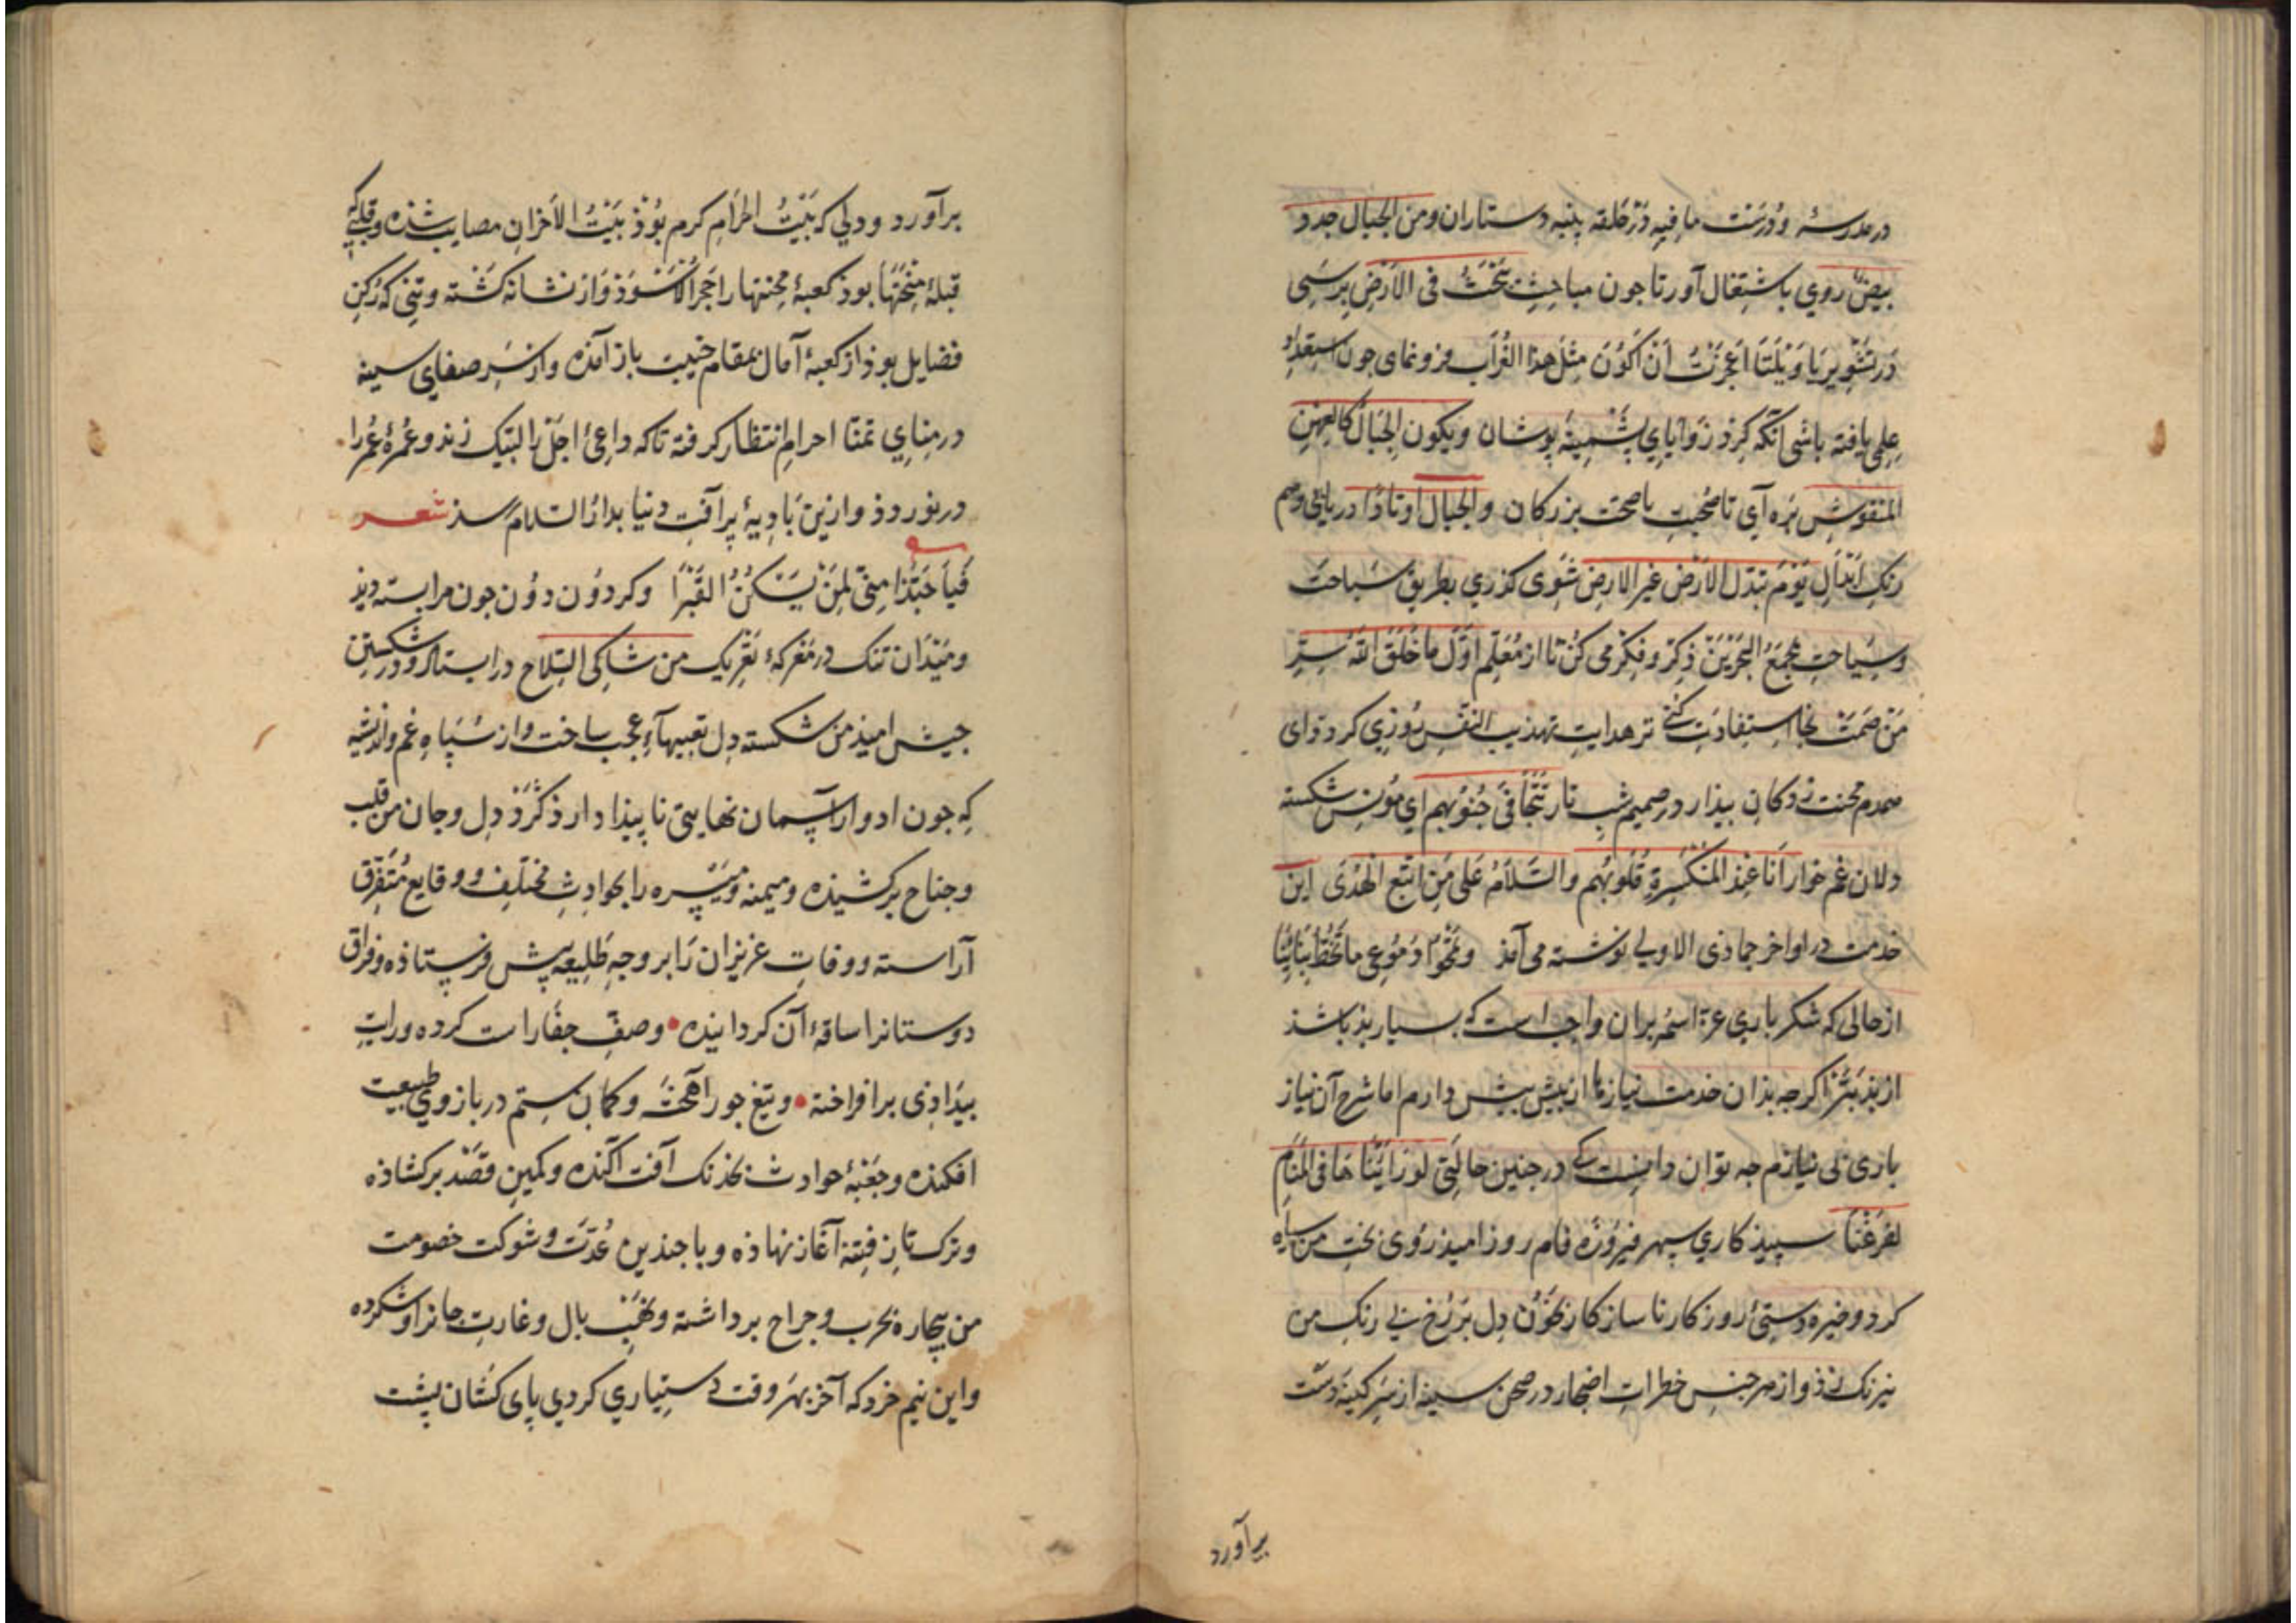 در مدرسهٔ و دُرِسَت ما فیهِ دَر حَلقه پنبه دستاران ومن الجبال جدد
بیضٌ روی باشتغال آور تا جون مباحِثِ یَبْحَثُ فی الارْضِ برسی
دَر تشویر یا وَیْلَتا اَعَجَزْتُ اَنْ اَکُوْنَ مِثْلَ هذا الغُرابِ فرو نمای جون استعدادِ
علمی یافته باشی آنگه کِرد زوایایِ پشمینه پوشان ویکون الجبال کالعهن
المنفوش بره آی تا صُحبتِ بزرکان والجبال اوتادًا دریابی وهم
رنکِ اَبْدالِ یَوْمَ تبدل الارض غیر الارض شوی کذری بطریق سَباحَت
وسِیاحتِ مجمَعُ البَحْرَیْن ذِکر وفِکر می کن تا از مُعَلِّم اوّلُ ما خَلَقَ اللهُ سِرِّ
مَنْ صَمَتَ نجا استفادت کنی ترهدایتِ تهذیب النفس روزی کردد وای
همدم محنت زدکانِ بیدار در صمیم شبِ تار تَتَجافی جُنُوبُهم ای مونس شکسته
دلان غم خوار اَنَا عِنْدَ المنکسِرةِ قُلُوبُهُم والسَّلامُ عَلی مَن اتبع الهُدَی این
خدمت در اواخر جماذی الاولی نوشته می آمد وتمْحُوا دُمُوعی ما تَخُطُّ بَنانیا
از حالی که شکر باری عزّ اسمه بران واجبست که بسیار بذ باشذ
از بذ بتر اکرجه بذان خدمت نیازها از بیش بیش دارم اما شرح آن نیاز
باری بی نیازم جه توان دانست که در جنین حالتی لو رَایْنا هَا فی المَنامِ
لفَزِعْنا سپیذ کاری سپهر فیروزه فام روز امید روی بخت من سیاه
کرد وخیره دستی روزکار ناساز کار بخون دِل بَر رُخِ بی رنکِ من
نیرنک زد واز هر جنس خطراتِ اضجار در صحن سینه از سر کینه دست
برآورد
برآورد ودلی که بَیْتُ الحرامِ کرم بُوْذ بَیْتُ الاَحْزانِ مصایب شذه وقلبی که
قبلهٔ مِنْحَتها بوذ کعبهٔ محنتها را حَجَر الاَسْوَد وار نشانه کشته وتنی که رُکنِ
فضایل بوذ از کعبهٔ آمال بمقام خیبت باز آمذه واز سَرِ صفای سینه
در مِنایِ تمنّا احرامِ انتظار کرفته تا که داعیِ اجل را لبّیک زند وعُمرهٔ عُمر را
در نوردد وازین بادیهٔ پر آفتِ دنیا بدار السّلام رسذ شعر
فَیا حَبَّذا مِنّی لِمَنْ یَسْکُنُ القَبْرَا وکردون دون جون مرا بسته دید
ومَیْدان تنک در مَعْرکهٔ تعریک من شاکی السّلاح در ایستاد ودر شکستن
جیش امیذ من شکسته دل تعبیهاءِ عجب ساخت واز سپاهِ غم واندیشه
که جون ادوارِ آسمان نهایتی نا پیذا دارد کَرْدِ دل وجان من قلب
وجناح برکشیده ومیمنه ومَیْسره را بحوادِثِ مختلِف ووقایع مُتَفَرِّق
آراسته ووفاتِ عزیزان رَا بر وجهِ طَلِیعه پیش فرستاذه وفراق
دوستانرا ساقهٔ آن کردانیده • وصفِ جفا راست کرده ورایتِ
بیداذی برافراخته • وتیغِ جور آهخته وکمانِ ستم در بازوی طبیعت
افکنده وجَعْبهٔ حوادث بخدنک آفت آکنده وکمین قصد برکشاذه
وترک تازِ فِتنه آغاز نهاذه وبا جندین عُدّت وشوکت خصومت
من بیچاره بحرب وجراح برداشته ونَهْبِ بال وغارت جانرا وَشکرده
واین نیم خرد که آخر بهَر وقت دستیاری کردی پای کشان پشت